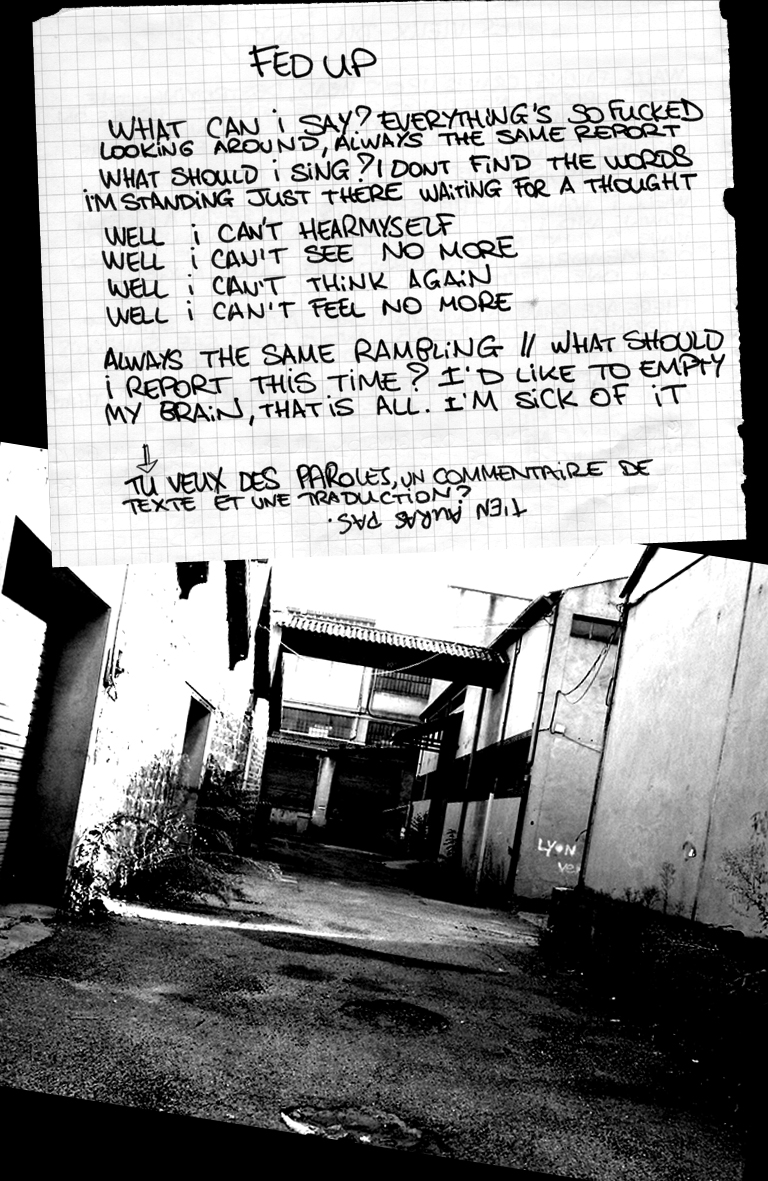 FED UP
WHAT CAN i SAY? EVERYTHiNG'S SO FUCKED
LOOKiNG AROUND, ALWAYS THE SAME REPORT
WHAT SHOULD i SiNG? I DONT FiND THE WORDS
i'M STANDiNG JUST THERE WAiTiNG FOR A THOUGHT
WELL i CAN'T HEARMYSELF
WELL i CAN'T SEE NO MORE
WELL i CAN'T THiNK AGAiN
WELL i CAN'T FEEL NO MORE
ALWAYS THE SAME RAMBLiNG // WHAT SHOULD
i REPORT THiS TiME? I'D LiKE TO EMPTY
MY BRAiN, THAT iS ALL. I'M SiCK OF iT
TU VEUX DES PAROLES, UN COMMENTAiRE DE
TEXTE ET UNE TRADUCTiON?
T'iEN AURAS PAS.
LYON